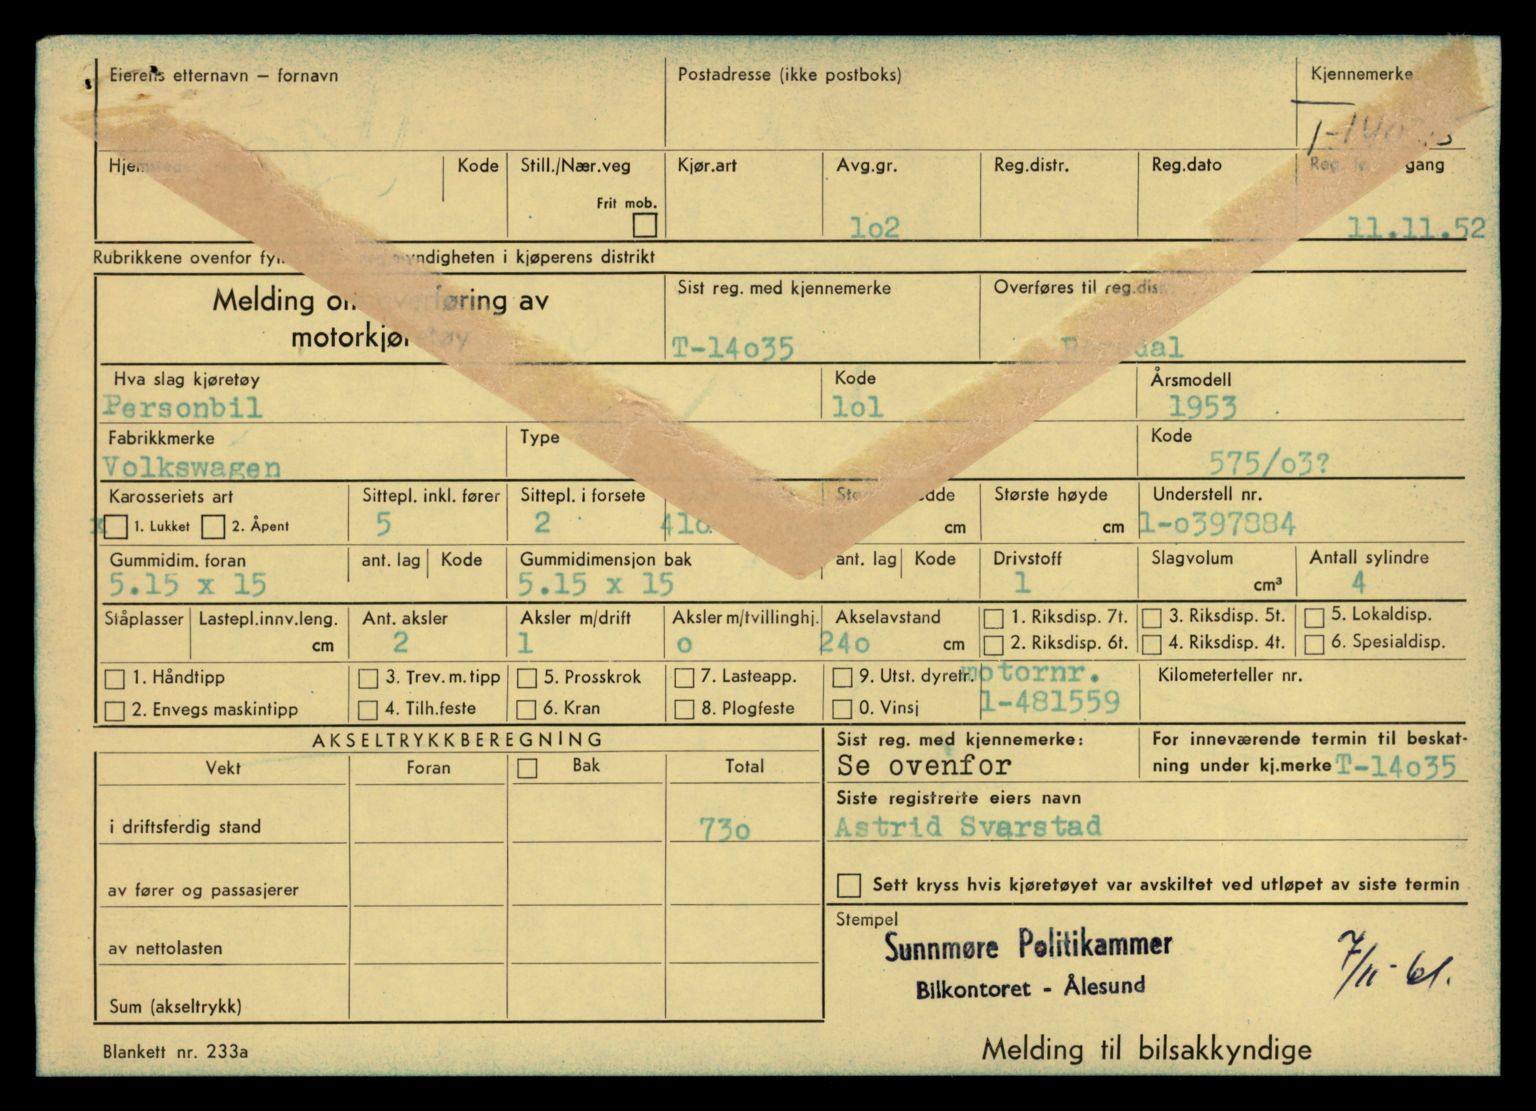 Eierens etternavn – fornavn
Postadresse (ikke postboks)
Kjennemerke
Kode
Still./Nær.veg
Frit mob.
Kjør.art
Avg.gr.
1o2
Reg.distr.
Reg.dato
gang
11.11.52
Rubrikkene ovenfor myndigheten i kjøperens distrikt
Melding om overføring av
motorkjøretøy
Sist reg. med kjennemerke
T-14o35
Overføres til reg.dis
Hva slag kjøretøy
Personbil
Kode
1o1
Årsmodell
1953
Fabrikkmerke
Volkswagen
Type
Kode
575/o3?
Karosseriets art
x 1. Lukket 2. Åpent
Sittepl. inkl. fører
5
Sittepl. i forsete
2
41o
cm
Største høyde
cm
Understell nr.
1-o397884
Gummidim. foran
5.15 x 15
ant. lag
Kode
Gummidimensjon bak
5.15 x 15
ant. lag
Kode
Drivstoff
1
Slagvolum
cm³
Antall sylindre
4
Ståplasser
Lastepl.innv.leng.
cm
Ant. aksler
2
Aksler m/drift
1
Aksler m/tvillinghj.
o
Akselavstand
24o cm
1. Riksdisp. 7t.
2. Riksdisp. 6t.
3. Riksdisp. 5t.
4. Riksdisp. 4t.
5. Lokaldisp.
6. Spesialdisp.
1. Håndtipp
2. Envegs maskintipp
3. Trev. m. tipp
4. Tilh.feste
5. Prosskrok
6. Kran
7. Lasteapp.
8. Plogfeste
9. Utst. dyretr.
0. Vinsj
motornr.
1-481559
Kilometerteller nr.
AKSELTRYKKBEREGNING
Vekt
Foran
Bak
Total
i driftsferdig stand
73o
av fører og passasjerer
av nettolasten
Sum (akseltrykk)
Sist reg. med kjennemerke:
Se ovenfor
For inneværende termin til beskat-
ning under kj.merke T-14o35
Siste registrerte eiers navn
Astrid Svarstad
Sett kryss hvis kjøretøyet var avskiltet ved utløpet av siste termin
Stempel
Sunnmøre Politikammer
Bilkontoret - Ålesund
7/11-61.
Blankett nr. 233a
Melding til bilsakkyndige